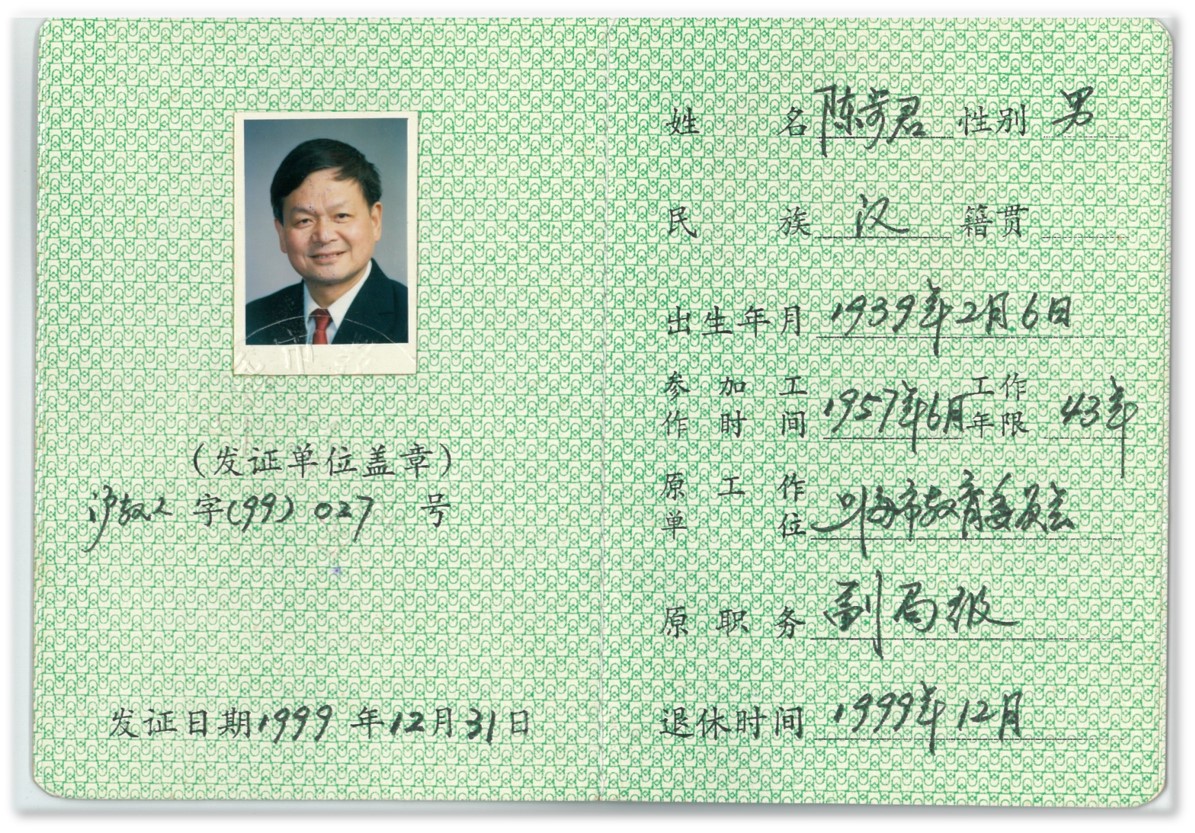 (发证单位盖章)
沪教人 字(99) 027 号
发证日期1999 年12月31日
姓 名 陈步君 性别 男
民 族 汉 籍贯
出生年月 1939年2月6日
参加工作时间 1957年6月 工作年限 43年
原工作单位 上海市教育委员会
原职务 副局级
退休时间 1999年12月